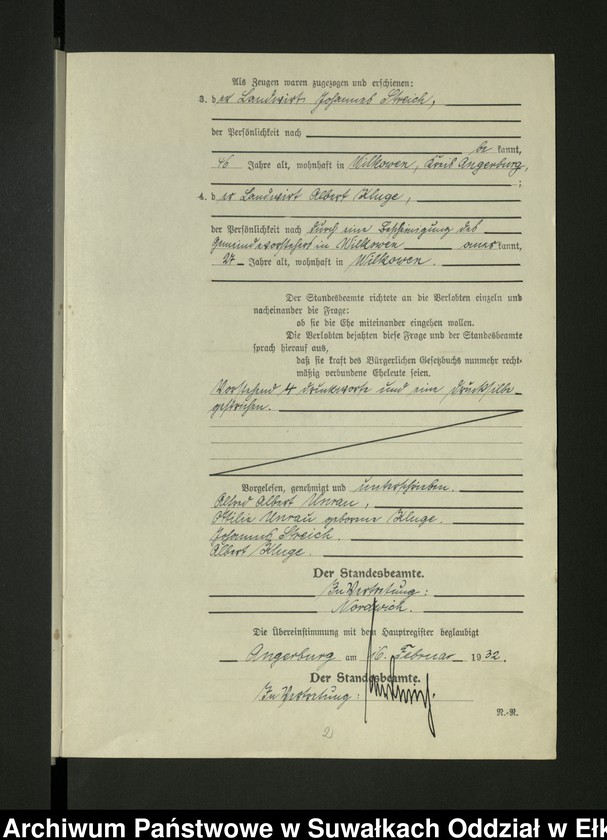 Als Zeugen waren zugezogen und erschienen:
3. der Landwirt Johannes Streich,
der Persönlichkeit nach
be kannt,
46 Jahre alt, wohnhaft in Wilkowen, Kreis Angerburg,
;
4. der Landwirt Albert Kluge,
der Persönlichkeit nach durch eine Bescheinigung des
Gemeindevorstehers in Wilkowen anerkannt,
27 Jahre alt, wohnhaft in Wilkowen.
Der Standesbeamte richtete an die Verlobten einzeln und
nacheinander die Frage:
ob sie die Ehe miteinander eingehen wollen.
Die Verlobten bejahten diese Frage und der Standesbeamte
sprach hierauf aus,
daß sie kraft des Bürgerlichen Gesetzbuchs nunmehr recht-
mäßig verbundene Eheleute seien.
Vorstehend 4 Druckworte und eine Drucksilbe
gestrichen.
Vorgelesen, genehmigt und unterschrieben.
Alfred Albert Unrau,
Ottilie Unrau geborene Kluge.
Johannes Streich.
Albert Kluge.
Der Standesbeamte.
In Vertretung:
Nordwich.
Die Übereinstimmung mit dem Hauptregister beglaubigt
Angerburg am 16. Februar 1932.
Der Standesbeamte.
In Vertretung:
N.-R.
2
Archiwum Państwowe w Suwałkach Oddział w Ełk